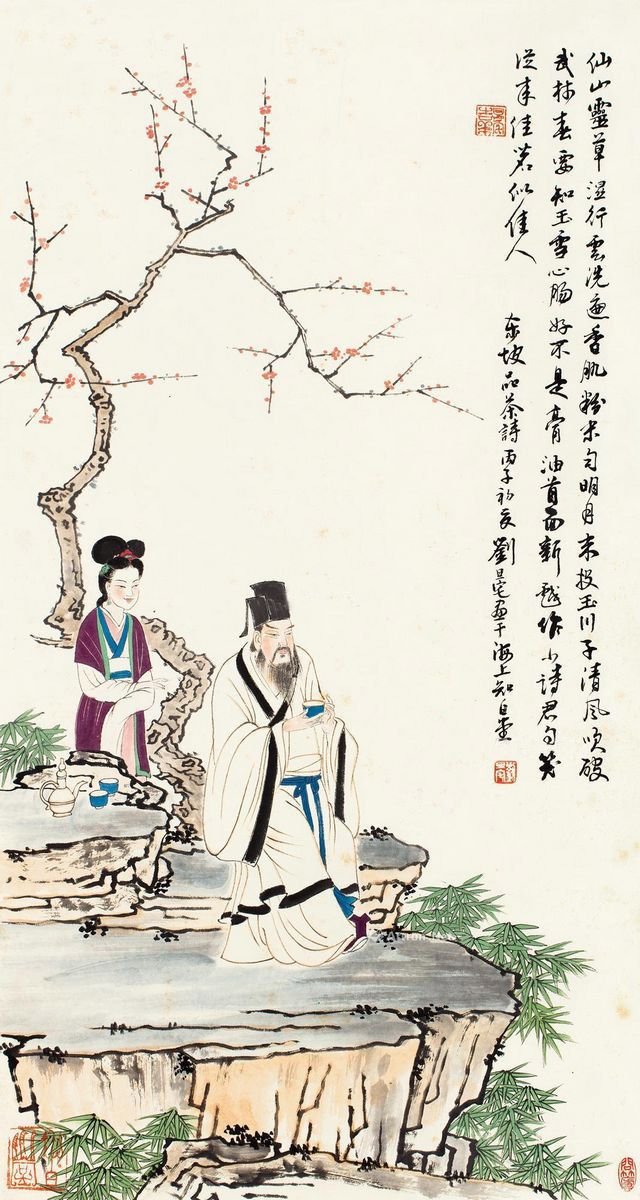 仙山靈草濕行雲洗遍香肌粉未勻明月來投玉川子清風吹破
武林春要知玉雪心腸好不是膏油首面新戲作小詩君勿笑
從來佳茗似佳人
東坡品茶詩丙子初夏劉旦宅畫于海上知白堂